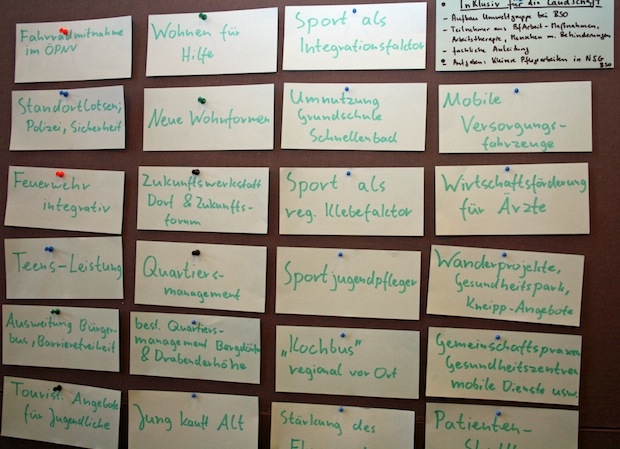 Fahrradmitnahme
im ÖPNV
Wohnen für
Hilfe
Sport als
Integrationsfaktor
Inklusiv für die Landschaft
- Aufbau Umweltgruppe bei BSO
- Teilnehmer aus
Arbeitstherapie, Menschen m. Behinderungen
- fachliche Anleitung
Aufgaben: Kleinere Pflegearbeiten in NSG
BSO
Standortlotsen;
Polizei, Sicherheit
Neue Wohnformen
Umnutzung
Grundschule
Schnellenbad
Mobile
Versorgungs-
fahrzeuge
Feuerwehr
integrativ
Zukunftswerkstatt
Dorf & Zukunfts-
forum
Sport als
reg. Klebefaktor
Wirtschaftsförderung
für Ärzte
Teens-Leistung
Quartiers-
management
Sportjugendpfleger
Wanderprojekte,
Gesundheitspark,
Kneipp-Angebote
Ausweitung Bürger-
bus, Barrierefreiheit
best. Quartiers-
management Bergdörfer
& Drabenderhöhe
„Kochbus"
regional vor Ort
Gemeinschaftspraxen
Gesundheitszentren
mobile Dienste usw.
Tourist. Angebote
für Jugendliche
Jung kauft Alt
Stärkung des
Patienten-